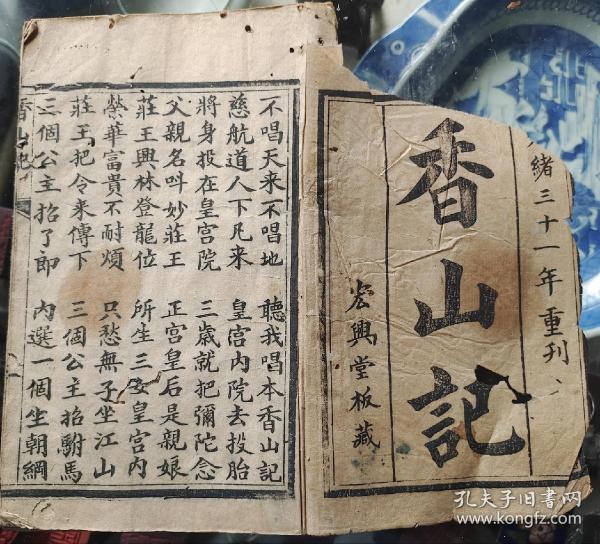 緒三十一年重刊
香山記
宏興堂板藏
不唱天來不唱地 聽我唱本香山記
慈航道人下凡來 皇宮內院去投胎
將身投在皇宮院 三歲就把彌陀念
父親名叫妙莊王 正宮皇后是親娘
莊王興林登龍位 所生三女皇宮內
榮華富貴不耐煩 只愁無子坐江山
莊王把令來傳下 三個公主招駙馬
三個公主招了郎 內選一個坐朝綱
香山記
孔夫子旧书网
www.kongfz.com